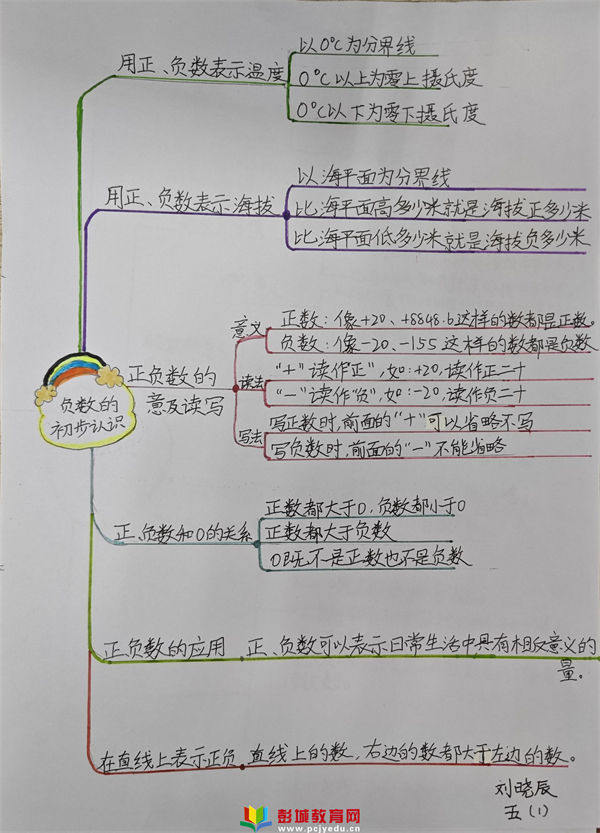 以0℃为分界线
用正、负数表示温度
0℃以上为零上摄氏度
0℃以下为零下摄氏度
以海平面为分界线
用正、负数表示海拔
比海平面高多少米就是海拔正多少米
比海平面低多少米就是海拔负多少米
负数的
初步认识
正负数的
意及读写
意义
正数：像+20、+8848.6这样的数都是正数。
负数：像-20、-155这样的数都是负数
读法
“+”读作“正”，如：+20，读作正二十
“-”读作“负”，如：-20，读作负二十
写法
写正数时，前面的“+”可以省略不写
写负数时，前面的“-”不能省略
正数都大于0，负数都小于0
正、负数和0的关系
正数都大于负数
0既不是正数也不是负数
正、负数的应用
正、负数可以表示日常生活中具有相反意义的
量。
在直线上表示正负
直线上的数，右边的数都大于左边的数。
刘晓辰
五（1）
彭城教育网
www.pcjyedu.cn